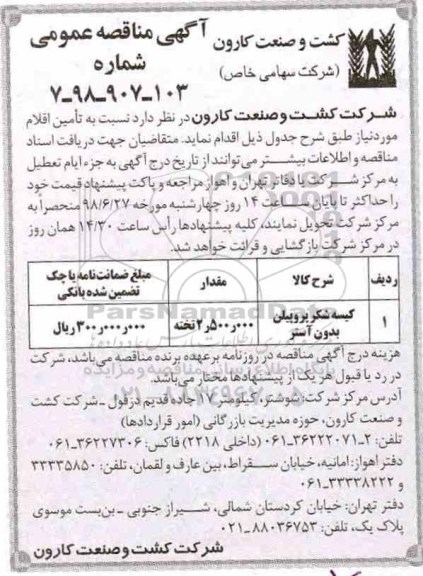 کشت و صنعت کارون
(شرکت سهامی خاص)
آگهی مناقصه عمومی
شماره
۷-۹۸-۹۰۷-۱۰۳
شرکت کشت و صنعت کارون در نظر دارد نسبت به تأمین اقلام
موردنیاز طبق شرح جدول ذیل اقدام نماید. متقاضیان جهت دریافت اسناد
مناقصه و اطلاعات بیشتر می‌توانند از تاریخ درج آگهی به جزء ایام تعطیل
به مرکز شرکت یا دفاتر تهران و اهواز مراجعه و پاکت پیشنهاد قیمت خود
را حداکثر تا پایان ساعت ۱۴ روز چهارشنبه مورخه ۹۸/۶/۲۷ منحصراً به
مرکز شرکت تحویل نمایند، کلیه پیشنهادها رأس ساعت ۱۴/۳۰ همان روز
در مرکز شرکت بازگشایی و قرائت خواهد شد.
ردیف شرح کالا مقدار مبلغ ضمانت‌نامه یا چک تضمین شده بانکی
۱ کیسه شکر پروپیلن بدون آستر ۲٫۵۰۰٫۰۰۰ تخته ۳۰۰٫۰۰۰٫۰۰۰ ریال
هزینه درج آگهی مناقصه در روزنامه برعهده برنده مناقصه می‌باشد، شرکت
در رد یا قبول هر یک از پیشنهادها مختار می‌باشد.
آدرس مرکز شرکت: شوشتر، کیلومتر ۱۷ جاده قدیم دزفول - شرکت کشت
و صنعت کارون، حوزه مدیریت بازرگانی (امور قراردادها)
تلفن: ۲-۳۶۲۲۲۰۷۱-۰۶۱ (داخلی ۲۲۱۸) فاکس: ۳۶۲۲۷۳۰۶-۰۶۱
دفتر اهواز: امانیه، خیابان سقراط، بین عارف و لقمان، تلفن: ۳۳۳۳۵۸۵۰
و ۳۳۳۳۸۲۲۲-۰۶۱
دفتر تهران: خیابان کردستان شمالی، شیراز جنوبی - بن‌بست موسوی
پلاک یک، تلفن: ۸۸۰۳۶۷۵۳-۰۲۱
شرکت کشت و صنعت کارون
ParsNamadData